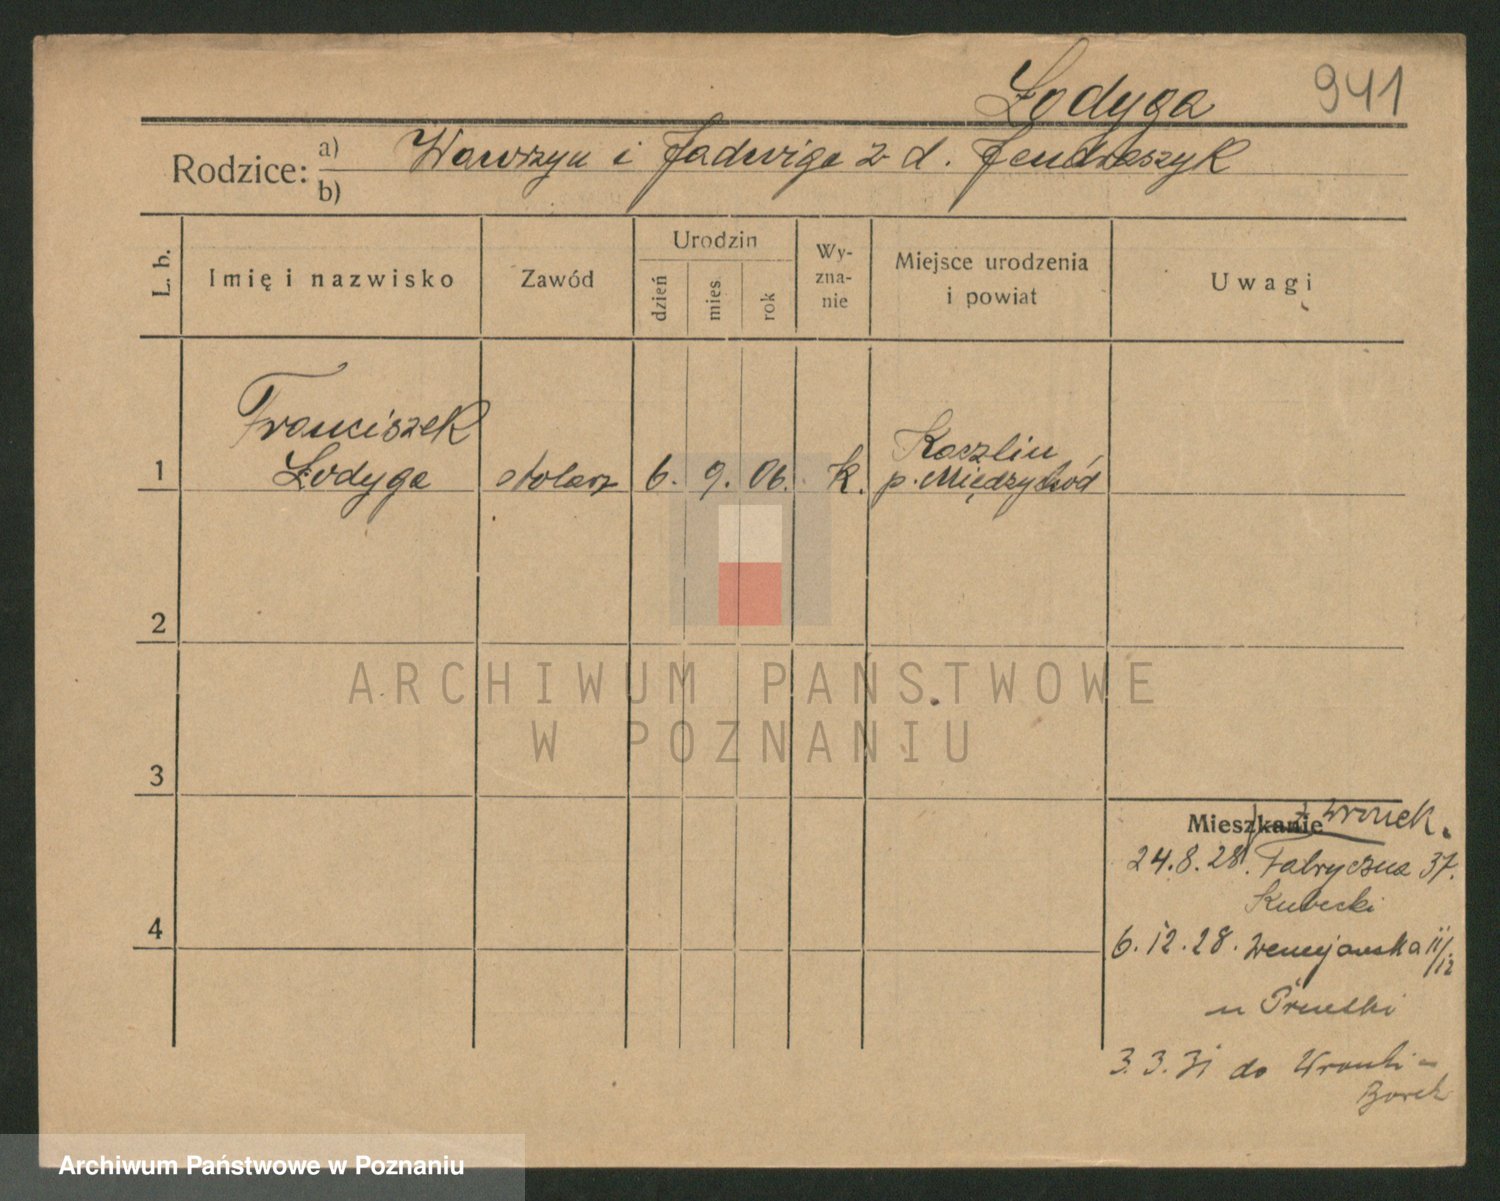 Łodyga 941
Rodzice: a) Wawrzyn i Jadwiga z d. Jendraszyk
b)
L. b. Imię i nazwisko Zawód Urodzin dzień mies. rok Wy-zna-nie Miejsce urodzenia i powiat Uwagi
Franciszek Koczlin
1 Łodyga stolarz 6. 9. 06. k. p. Międzychód
2
ARCHIWUM PAŃSTWOWE
W POZNANIU
3
Mieszkanie z Wronek.
24.8.28. Fabryczna 37.
Kubecki
4
6.12.28. 11/12
u
3.3.31 do Wronki-
Borek
Archiwum Państwowe w Poznaniu